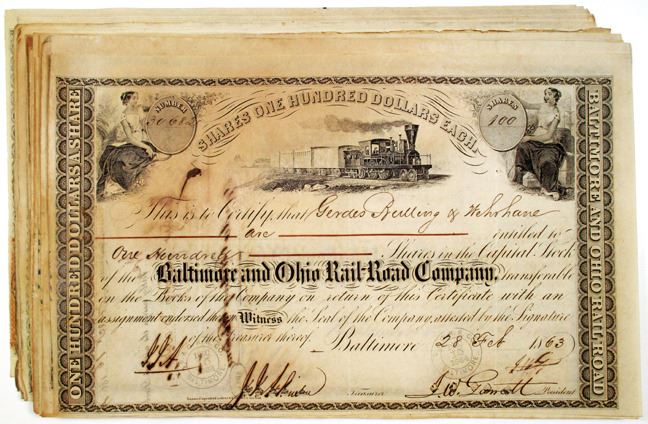 ONE HUNDRED DOLLARS A SHARE
NUMBER
SHARES ONE HUNDRED DOLLARS EACH.
SHARES
100
BALTIMORE AND OHIO RAIL-ROAD
This is to Certify, that Gerdes Bulling & Wehrhane
are entitled to
One Hundred Shares in the Capital Stock
of the Baltimore and Ohio Rail-Road Company, transferable
on the Books of the Company on return of this Certificate with an
assignment endorsed thereon Witness the Seal of the Company, attested by the Signature
of the Treasurer thereof. Baltimore 28 Feb 1863
Treasurer President